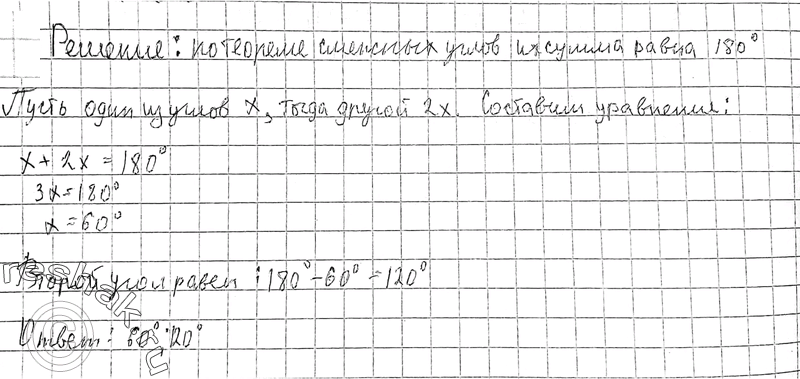 Решение: по теореме смежных углов их сумма равна 180°
Пусть один из углов x, тогда другой 2x. Составим уравнение:
x + 2x = 180°
3x = 180°
x = 60°
Второй угол равен: 180° - 60° = 120°
Ответ: 60° 120°
reshak.ru